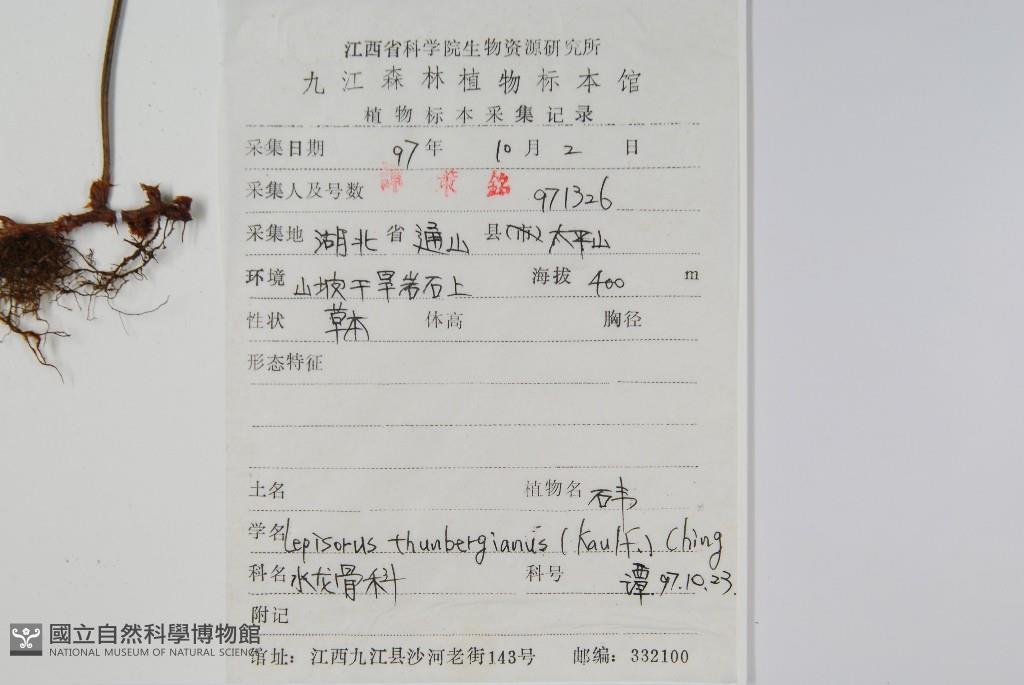 江西省科学院生物资源研究所
九江森林植物标本馆
植物标本采集记录
采集日期 97年 10月 2 日
采集人及号数 谭策铭 971326
采集地 湖北 省 通山 县(市) 太平山
环境 山坡干旱岩石上 海拔 400 m
性状 草本 体高 胸径
形态特征
土名 植物名 石韦
学名 Lepisorus thunbergianus (Kaulf.) Ching
科名 水龙骨科 科号 谭.97.10.23.
附记
馆址: 江西九江县沙河老街143号 邮编: 332100
國立自然科學博物館
NATIONAL MUSEUM OF NATURAL SCIENCE